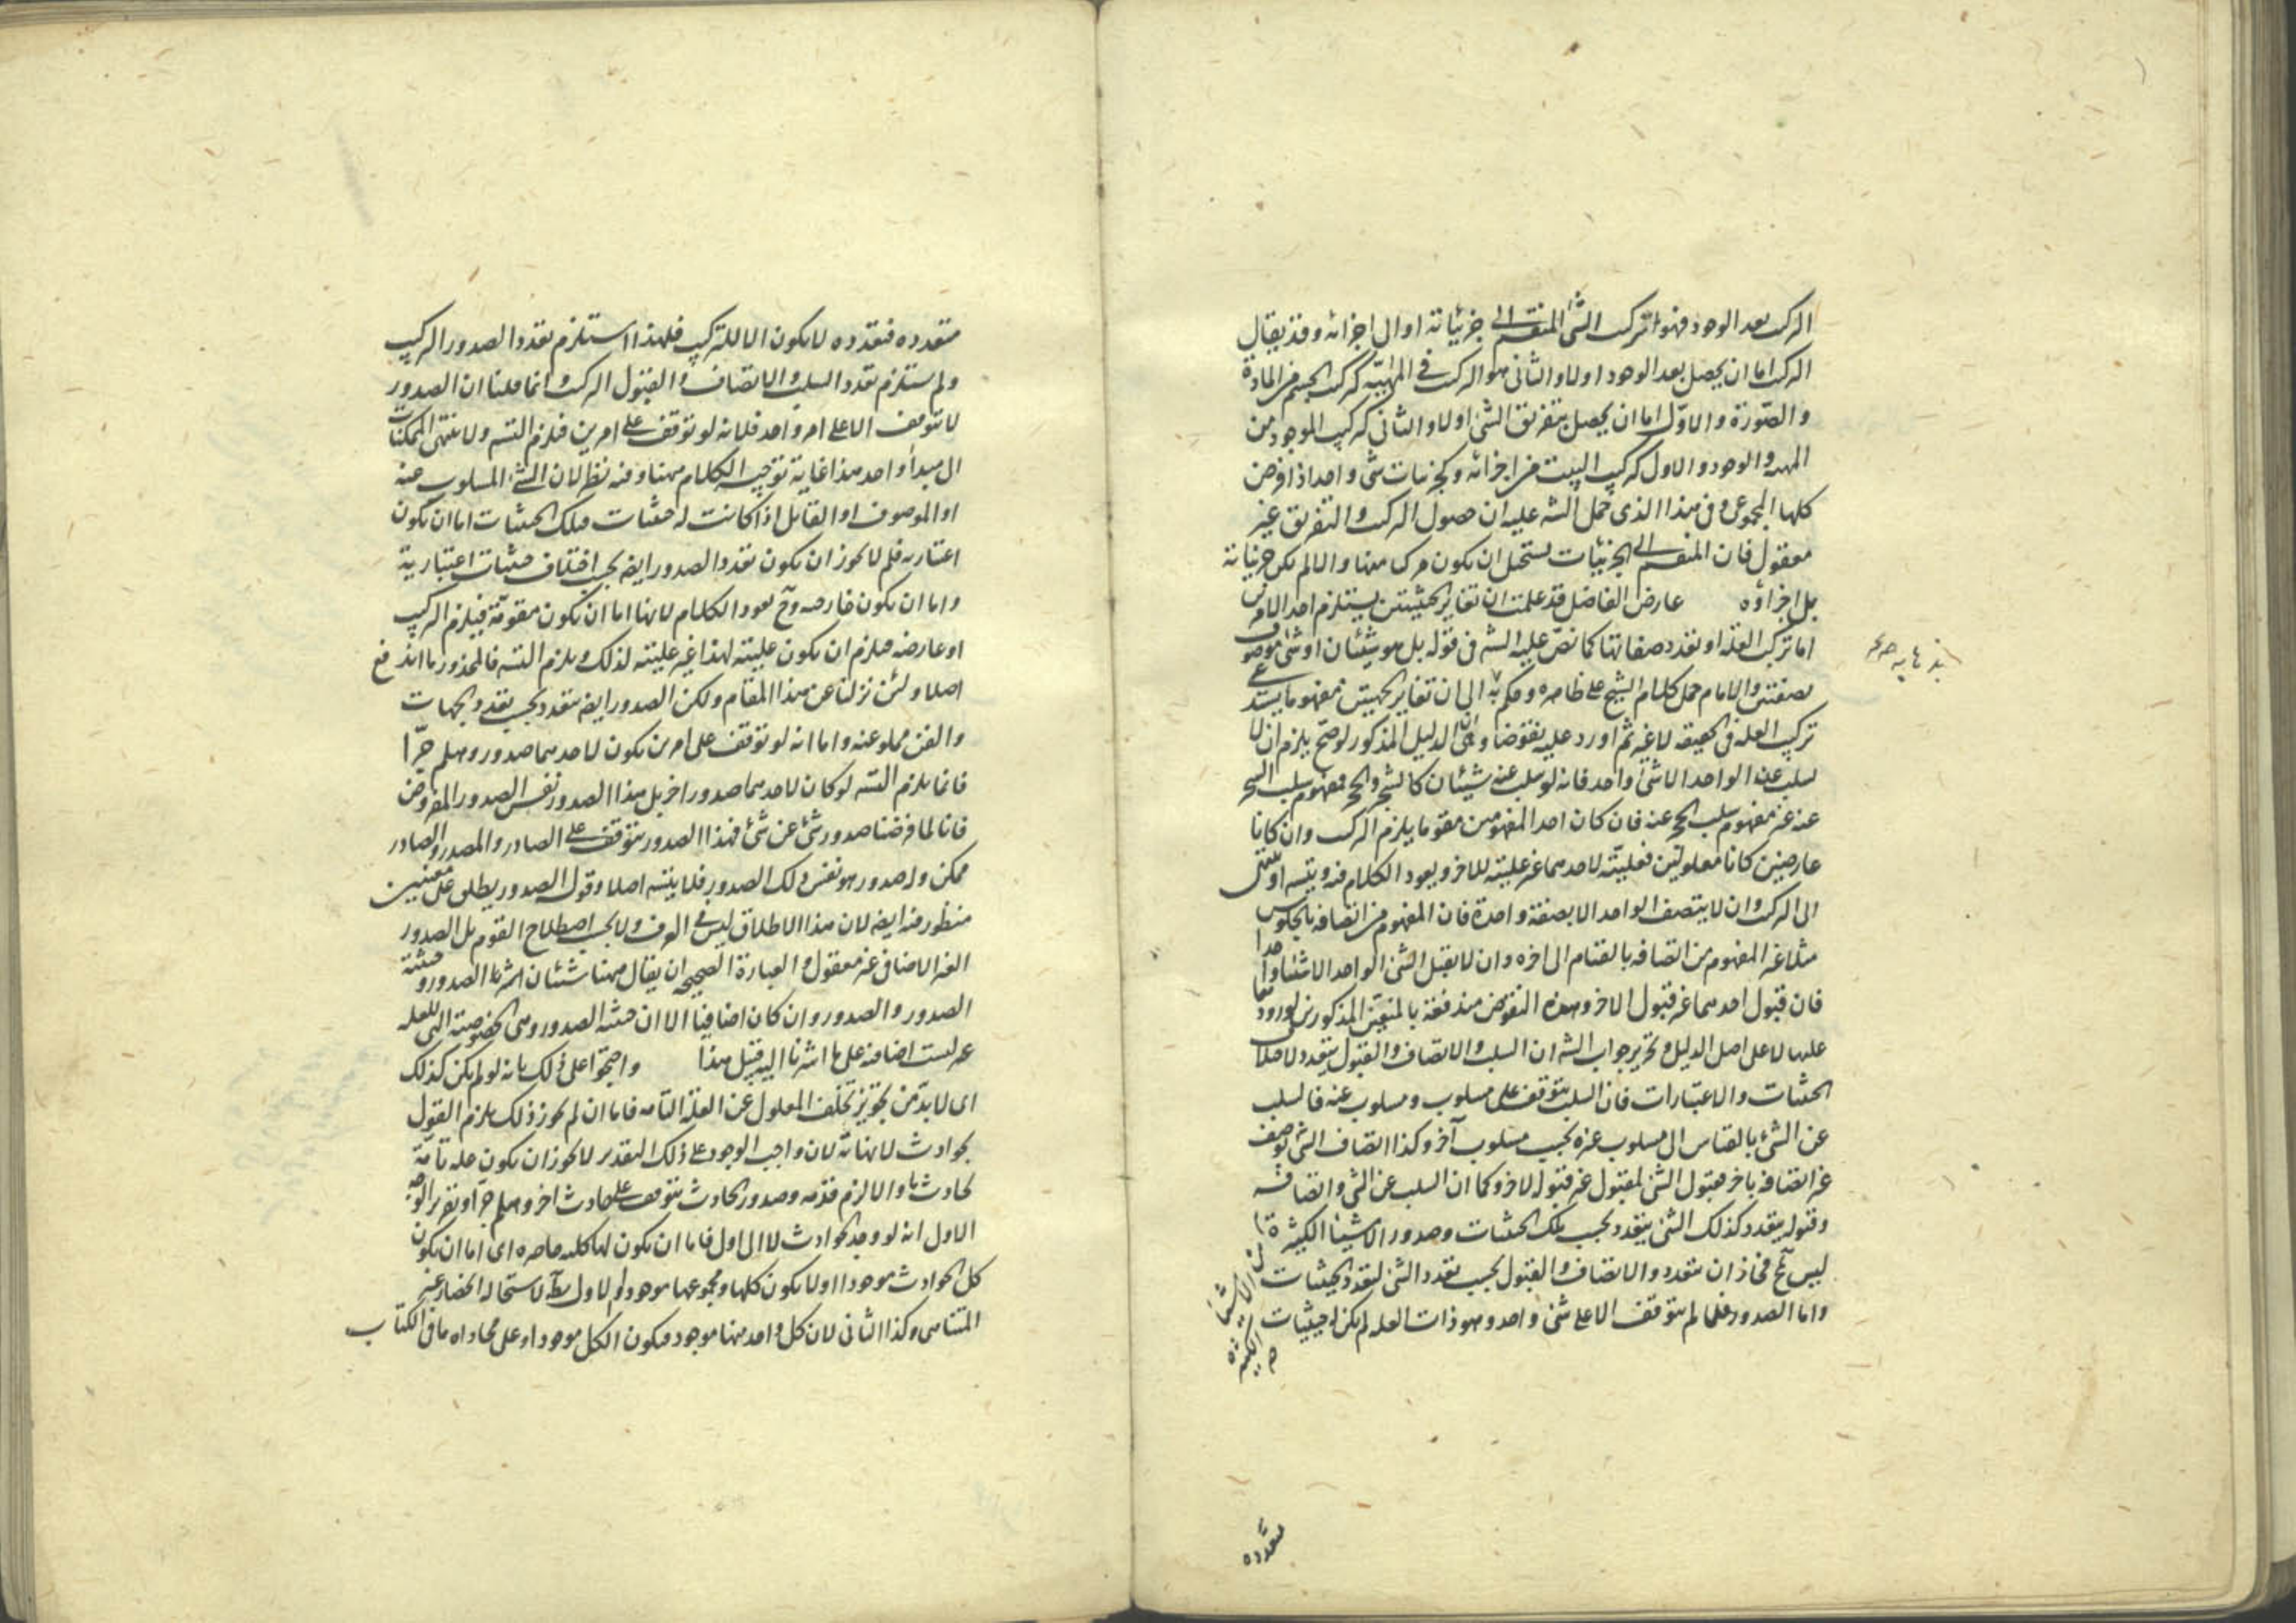 التركيب بعد الوجود فهو تركب الشئ المنقسم الى جزئياته او الى اجزائه وقد يقال
التركيب اما ان يحصل بعد الوجود اولا والثانى هو التركيب فى المهيّة كتركب الجسم من المادة
والصّورة والاوّل اما ان يحصل بتفريق الشئ اولا والثانى كتركيب الموجود من
المهية والوجود والاول كتركيب البيت من اجزائه وكجزئيات شئ واحد اذا فرض
كلها المجموعى وفى هذا الذى حمل الشه عليه ان حصول التركيب والتفريق غير
معقول فان المنقسم الى الجزئيات يستحيل ان يكون مركبا منها والا لم يكن جزئياته
بل اجزاؤه عارض الفاضل قد علمت ان تغاير الحيثيتين يستلزم احد الامرين
اما تركب العلة او تعدد صفاتها كما نصّ عليه الشه فى قوله بل هو شيئان او شئ موصوف
بصفتين والامام حمل كلام الشيخ على ظاهره وحكم بانه الى ان تغاير الجهتين مفهوما يستدعى
تركيب العلة فى الحقيقة لا غير ثم اورد عليه نقوضا وهى ان الدليل المذكور لو صحّ يلزم ان لا
يسلب عن الواحد الا شئ واحد فانه لو سلب عنه شيئان كالشجر والحجر فمفهوم سلب الشجر
عنه غير مفهوم سلب الحجر عنه فان كان احد المفهومين مقوما يلزم التركيب وان كانا
عارضين كانا معلولين فعليّته لاحدهما غير عليته للاخر ويعود الكلام فيه ويتسه او ينتهى
الى التركيب وان لا يتصف الواحد الا بصفة واحدة فان المفهوم من اتصافه بالجلوس
مثلا غير المفهوم من اتصافه بالقيام الى اخره وان لا يقبل الشئ الواحد الا شيئا واحدا
فان قبول احدهما غير قبول الاخر وهذه النقوض مندفعة بالمنعين المذكورين لورودها
عليها لا على اصل الدليل وتحرير جواب الشه ان السلب والاتصاف والقبول يتعدد لاختلاف
الحيثيات والاعتبارات فان السلب يتوقف على مسلوب ومسلوب عنه فالسلب
عن الشئ بالقياس الى مسلوب غيره بحسب مسلوب آخر وكذا اتصاف الشئ بوصف
غير اتصافه باخر وقبول الشئ لمقبول غير قبوله لاخر وكما ان السلب عن الشئ واتصافه
وقبوله يتعدد كذلك الشئ يتعدد بحسب تلك الحيثيات وصدور الاشياء الكثيرة
ليس بمح فجاز ان يتعدد والاتصاف والقبول بحسب تعدد الشئ لتعدد الحيثيات
واما الصدور فلما لم يتوقف الا على شئ واحد وهو ذات العلة لم يكن له حيثيات
عن الاشياء
الكثيرة صح
متعدده
متعدده فتعدده لا يكون الا للتركيب فلهذا استلزم تعدد الصدور التركيب
ولم يستلزم تعدد السلب والاتصاف والقبول التركيب وانما قلنا ان الصدور
لا يتوقف الا على امر واحد فلانه لو توقف على امرين فيلزم التسه ولا ينتهى الممكنات
الى مبدأ واحد هذا غاية توجيه الكلام ههنا وفيه نظر لان الشئ المسلوب عنه
او الموصوف او القابل اذا كانت له حيثيات فتلك الحيثيات اما ان يكون
اعتباريه فلم لا يجوز ان يكون تعدد الصدور ايضه بحسب اختلاف حيثيات اعتبارية
واما ان يكون خارجيه وح يعود الكلام لانها اما ان يكون مقومة فيلزم التركيب
او عارضه فيلزم ان يكون عليته لهذا غير عليته لذلك ويلزم التسه فالمحذور ما اندفع
اصلا ولئن نزلنا عن هذا المقام ولكن الصدور ايضه يتعدد بحسب تعدد الجهات
والفن مملو عنه واما انه لو توقف على امرين يكون لاحدهما صدور وهلم جرّا
فانما يلزم التسه لو كان لاحدهما صدور اخر بل هذا الصدور نفس الصدور المفروض
فانا لما فرضنا صدور شئ عن شئ فهذا الصدور يتوقف على الصادر والمصدر والصادر
ممكن وله صدور هو نفس ذلك الصدور فلا يتسه اصلا وقوله الصدور يطلق على معنيين
منظور فيه ايضه لان هذا الاطلاق ليس فى العرف ولا بحسب اصطلاح القوم بل الصدور
الغير الاضافى غير معقول والعبارة الصحيحه ان يقال ههنا شيئان اشرنا الصدور وحيثية
الصدور والصدور وان كان اضافيا الا ان حيثية الصدور وهى الخصوصية التى للعلة
غير ليست اضافية على ما اشرنا اليه قبيل هذا واحتجوا على ذلك بانه لو لم يكن كذلك
اى لا بد من تجويز تخلف المعلول عن العلة التامه فاما ان لم يجوز ذلك يلزم القول
بحوادث لا نهاية لان واجب الوجود على ذلك التقدير لا يجوز ان يكون علة تامة
لحادث ما والا لزم قدمه وصدور الحادث يتوقف على حادث اخر وهلم جرّا وتقرير الوجه
الاول انه لو وجد الحوادث لا الى اول فاما ان يكون لها كلية حاصره اى اما ان يكون
كل الحوادث موجودا اولا يكون كلها ومجموعها موجودا والاول بط لاستحالة انحصار غير
المتناهى وكذا الثانى لان كل واحد منها موجود فيكون الكل موجودا وعلى محاذاه ما فى الكتاب